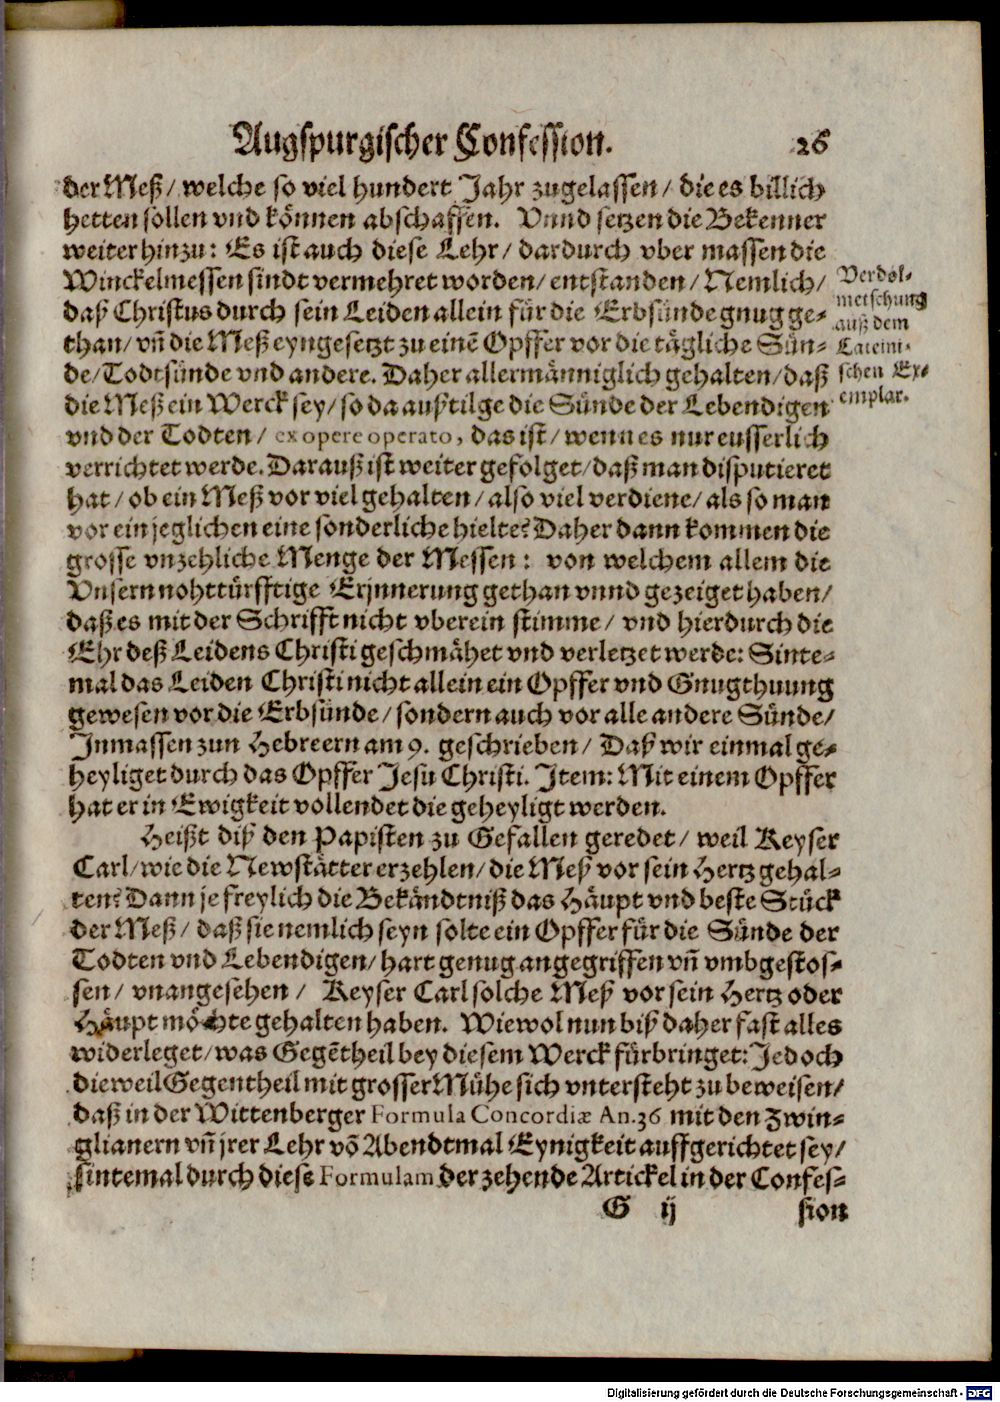 Augspurgischer Confession. 26
der Meß / welche so viel hundert Jahr zugelassen / die es billich
hetten sollen vnd können abschaffen. Vnnd setzen die Bekenner
weiter hinzu: Es ist auch diese Lehr / dardurch vber massen die
Winckelmessen sindt vermehret worden / entstanden / Nemlich /
daß Christus durch sein Leiden allein für die Erbsünde gnug ge-
than / vñ die Meß eyngesetzt zu einẽ Opffer vor die tägliche Sün-
de / Todtsünde vnd andere. Daher allermänniglich gehalten / daß
die Meß ein Werck sey / so da außtilge die Sünde der Lebendigen
vnd der Todten / ex opere operato, das ist / wenn es nur eusserlich
verrichtet werde. Darauß ist weiter gefolget / daß man disputieret
hat / ob ein Meß vor viel gehalten / also viel verdiene / als so man
vor ein jeglichen eine sonderliche hielte? Daher dann kommen die
grosse vnzehliche Menge der Messen: von welchem allem die
Vnsern nohttürfftige Erjnnerung gethan vnnd gezeiget haben /
daß es mit der Schrifft nicht vberein stimme / vnd hierdurch die
Ehr deß Leidens Christi geschmähet vnd verletzet werde: Sinte-
mal das Leiden Christi nicht allein ein Opffer vnd Gnugthuung
gewesen vor die Erbsünde / sondern auch vor alle andere Sünde /
Inmassen zun Hebreern am 9. geschrieben / Daß wir einmal ge-
heyliget durch das Opffer Jesu Christi. Item: Mit einem Opffer
hat er in Ewigkeit vollendet die geheyligt werden.
Heißt diß den Papisten zu Gefallen geredet / weil Keyser
Carl / wie die Newstätter erzehlen / die Meß vor sein Hertz gehal-
ten? Dann je freylich die Bekändtniß das Häupt vnd beste Stück
der Meß / daß sie nemlich seyn solte ein Opffer für die Sünde der
Todten vnd Lebendigen / hart genug angegriffen vñ vmbgestos-
sen / vnangesehen / Keyser Carl solche Meß vor sein Hertz oder
Häupt möchte gehalten haben. Wiewol nun biß daher fast alles
widerleget / was Gegẽtheil bey diesem Werck fürbringet: Jedoch
dieweil Gegentheil mit grosser Mühe sich vntersteht zu beweisen /
daß in der Wittenberger Formula Concordiæ An. 36 mit den Zwin-
glianern vñ jrer Lehr võ Abendtmal Eynigkeit auffgerichtet sey /
sintemal durch diese Formulam der zehende Artickel in der Confes-
G ij sion
Verdol-
metschung
auß dem
Lateini-
schen Ex-
emplar.
Digitalisierung gefördert durch die Deutsche Forschungsgemeinschaft - DFG